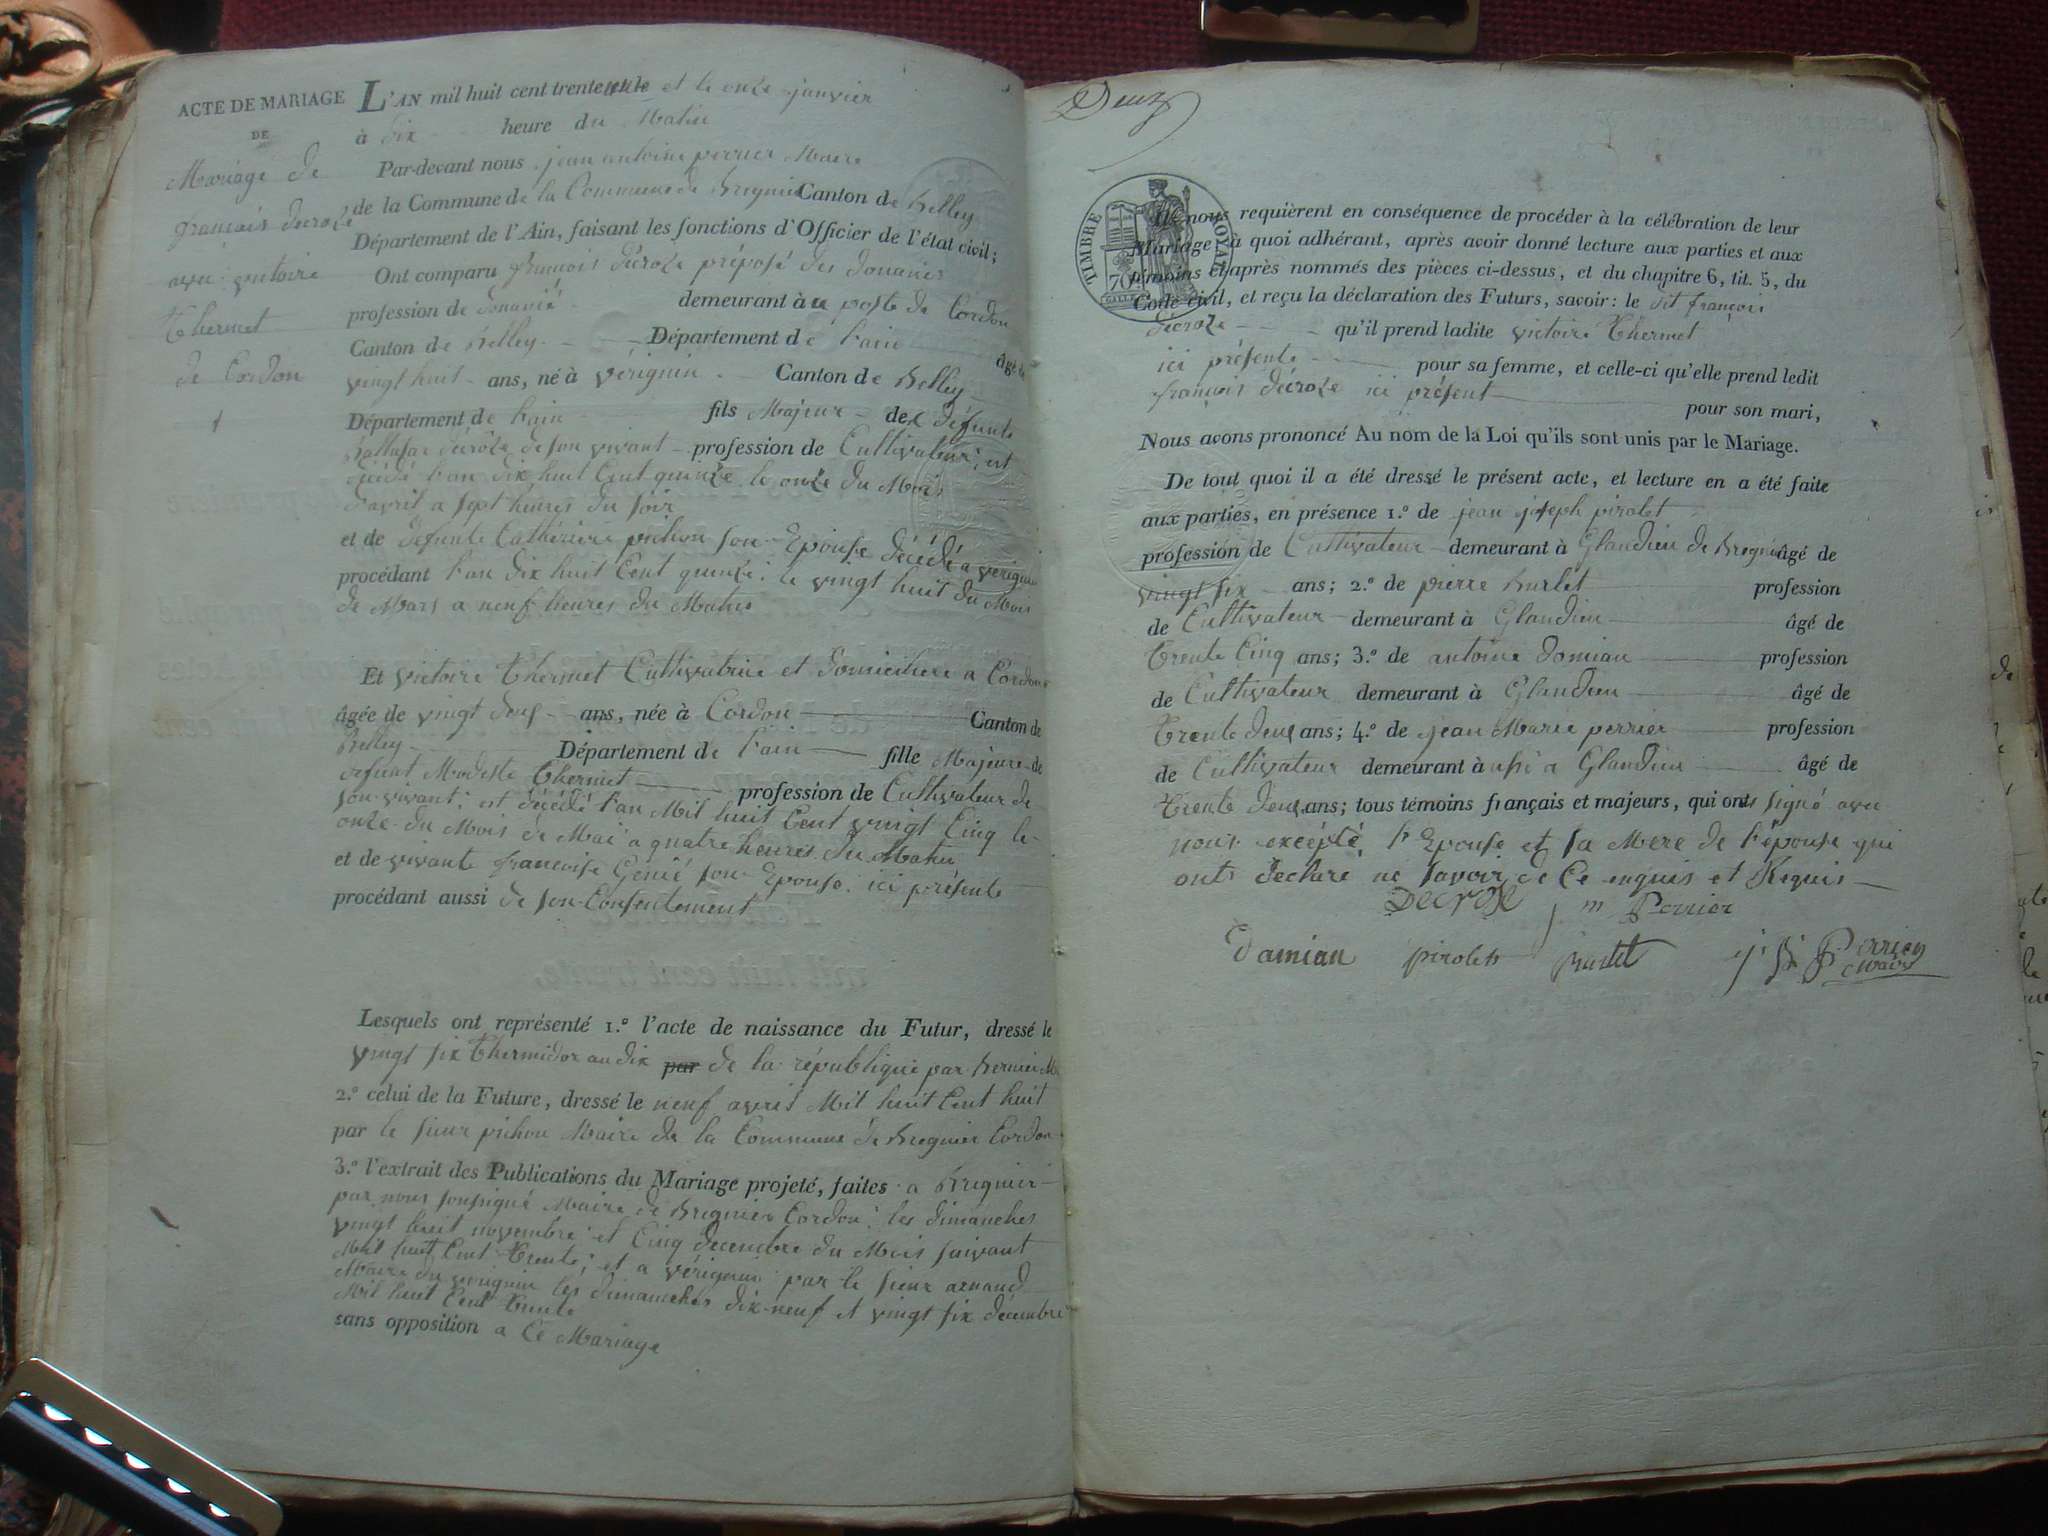 ACTE DE MARIAGE
DE
Mariage de
françois decroze
avec victoire
Thermet
de Cordon
L'AN mil huit cent trente et le onze janvier
à dix heure du Matin
Par-devant nous jean antoine perrier Maire
de la Commune de la Commune de Bregnier Canton de Belley
Département de l'Ain, faisant les fonctions d'Officier de l'état civil;
Ont comparu françois décroze préposé des douanes
profession de douanié demeurant à au poste de Cordon
Canton de Belley Département de L'ain âgé de
vingt huit ans, né à vérignin Canton de Belley
Département de L'ain fils Majeur de défunt
Baltasar décroze de son vivant profession de Cultivateur, est
décédé L'an dix huit Cent quinze le onze du Mois
d'avril a sept heures du soir
et de défunte Cathérine pichon son Epouse décédé a verignin
procédant L'an dix huit Cent quinze le vingt huit du Mois
de Mars a neuf heures du Matin
Et victoire Thermet Cultivatrice et domiciliere a Cordon
âgée de vingt deux ans, née à Cordon Canton de
Belley Département de L'ain fille Majeure de
defunt Modeste Thermet profession de Cultivateur de
son vivant; est décédé L'an Mil huit Cent vingt Cinq le
onze du Mois de Mai a quatre heures du Matin
et de vivante francoise Génié son Epouse ici présente
procédant aussi de son Consentement
Lesquels ont représenté 1.° l'acte de naissance du Futur, dressé le
vingt six Thermidor an dix par de la république par Bernier
2.° celui de la Future, dressé le neuf avril Mil huit Cent huit
par le sieur pichon Maire de la Commune de Bregnier Cordon
3.° l'extrait des Publications du Mariage projeté, faites a Bregnier
par nous soussigné Maire de Bregnier Cordon les dimanches
vingt huit novembre et Cinq decembre du Mois suivant
Mil huit Cent Trente; et a vérignin par le sieur arnaud
Maire du verignin les dimanches dix-neuf et vingt six décembre
Mil huit Cent Trente
sans opposition a Ce Mariage
Deux
TIMBRE ROYAL
70
nous requièrent en conséquence de procéder à la célébration de leur
Mariage, à quoi adhérant, après avoir donné lecture aux parties et aux
témoins ci-après nommés des pièces ci-dessus, et du chapitre 6, tit. 5, du
Code civil, et reçu la déclaration des Futurs, savoir: le dit françois
décroze qu'il prend ladite victoire Thermet
ici présente pour sa femme, et celle-ci qu'elle prend ledit
françois décroze ici présent pour son mari,
Nous avons prononcé Au nom de la Loi qu'ils sont unis par le Mariage.
De tout quoi il a été dressé le présent acte, et lecture en a été faite
aux parties, en présence 1.° de jean joseph pirolet
profession de Cultivateur demeurant à Glandieu de Bregnier âgé de
vingt six ans; 2.° de pierre burlet profession
de Cultivateur demeurant à Glandieu âgé de
Trente Cinq ans; 3.° de antoine damian profession
de Cultivateur demeurant à Glandieu âgé de
Trente deux ans; 4.° de jean Marie perrier profession
de Cultivateur demeurant à ausi a Glandieu âgé de
Trente deux ans; tous témoins français et majeurs, qui ont signé avec
nous excépté, L'Epouse et sa Mere de L'épouse qui
onts declaré ne savoir de Ce enquis et Requis
Decroze j m Perrier
Damian pirolet burlet j. Perrier
Maire